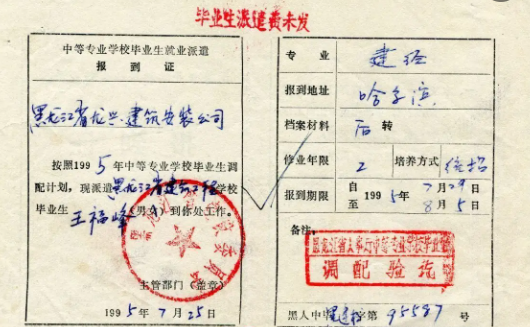 毕业生派遣费未发
中等专业学校毕业生就业派遣
报到证
黑龙江省龙兴建筑安装公司
按照1995年中等专业学校毕业生调
配计划，现派遣黑龙江省建筑工程学校
毕业生王福峰（男女）到你处工作。
主管部门（盖章）
1995年7月25日
专业 建经
报到地址 哈尔滨
档案材料 后转
修业年限 2 培养方式 统招
报到期限 自1995年7月29日
至8月5日
备注：
黑龙江省人事厅中等专业学校毕业生
调配验讫
黑人中 字第95587号